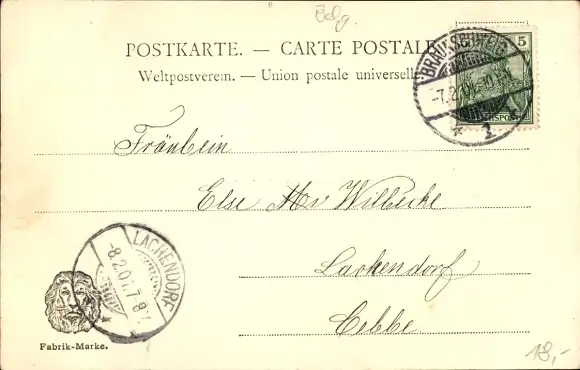 POSTKARTE. — CARTE POSTALE
Weltpostverein. — Union postale universelle
5
BRAUNSCHWEIG
-7.2.01
* 1
Fräulein
Else
Lachendorf
Celle
LACHENDORF
-8.2.01.7-8V.
*
Fabrik-Marke.
18,-